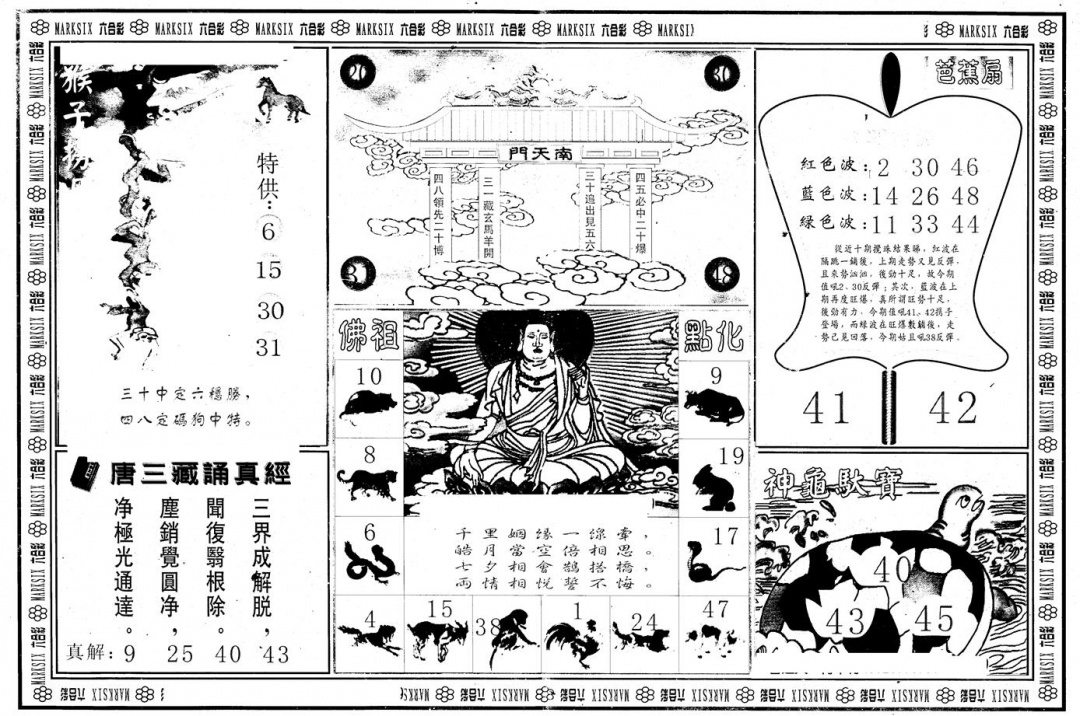 MARKSIX 六合彩 MARKSIX 六合彩 MARKSIX 六合彩 MARKSIX 六合彩 MARKSIX 六合彩 MARKSIX 六合彩 MARKSIX
MARKSIX 六合彩 MARKSIX 六合彩
猴子
特供:
6
15
30
31
三十中定六穩勝，
四八定碼狗中特。
30
31
18
南天門
四八領先二十博
三一藏玄馬羊開
三十追出見五六
四五必中二十爆
芭蕉扇
紅色波:2 30 46
藍色波:14 26 48
绿色波:11 33 44
從近十期攪珠結果睇，紅波在
隔跳一鋪後，上期走勢又見反彈，
且來勢汹汹，後勁十足，故今期
值吼2、30反彈；其次，藍波在上
期再度旺爆，真所謂旺勢十足，
後勁有力，今期值吼41、42携手
登場，而绿波在旺爆數鋪後，走
勢已見回落，今期姑且吼38反彈。
41 42
佛祖
點化
10
8
6
4
15
38
1
24
47
17
19
9
千里姻缘一線牽，
皓月當空倍相思。
七夕相會鵲搭橋，
两情相悦誓不悔。
唐三藏誦真經
三界成解脱，
聞復翳根除。
塵銷覺圓净，
净極光通達。
真解:9 25 40 43
神龜馱寶
40
43
45